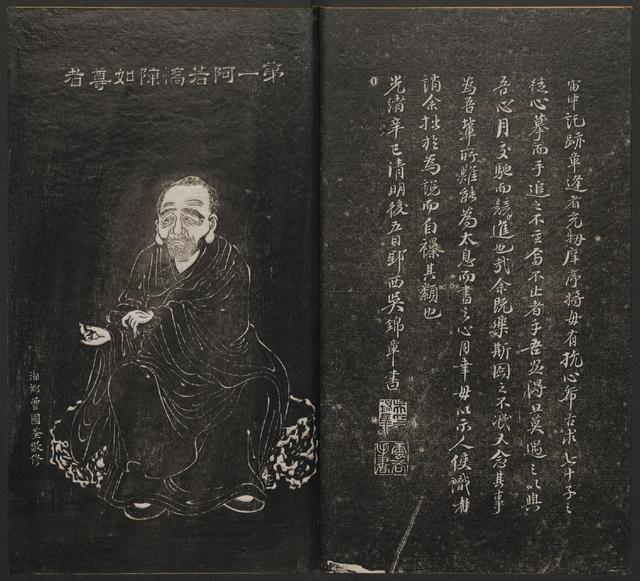 宙中記跡車逢者充牣庠序將毋有抗心希古求七十子之
徒心摹而手追之不至焉不止者乎吾思得旦莫遇之以與
吾心月交馳而競進也哉余既樂斯圖之不泯又念其事
為吾輩所難能為太息而書之心月幸毋以示人使識者
誚余拙於為說而自襮其類也
光緒辛巳清明後五日郢西吳錦章書
第一阿若憍陳如尊者
湘鄉曾國荃敬修